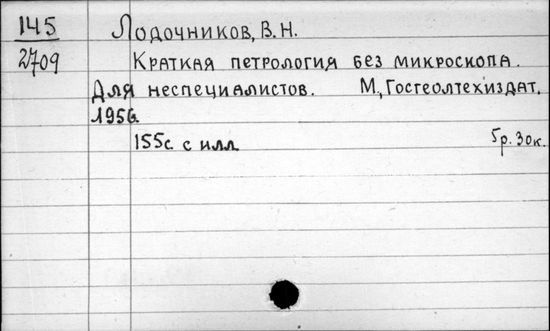 145 Лодочников, В. Н.
2709 Краткая петрология без микроскопа.
Для неспециалистов. М, Госгеолтехиздат.
1956.
155с. с илл. 5р. 30к.